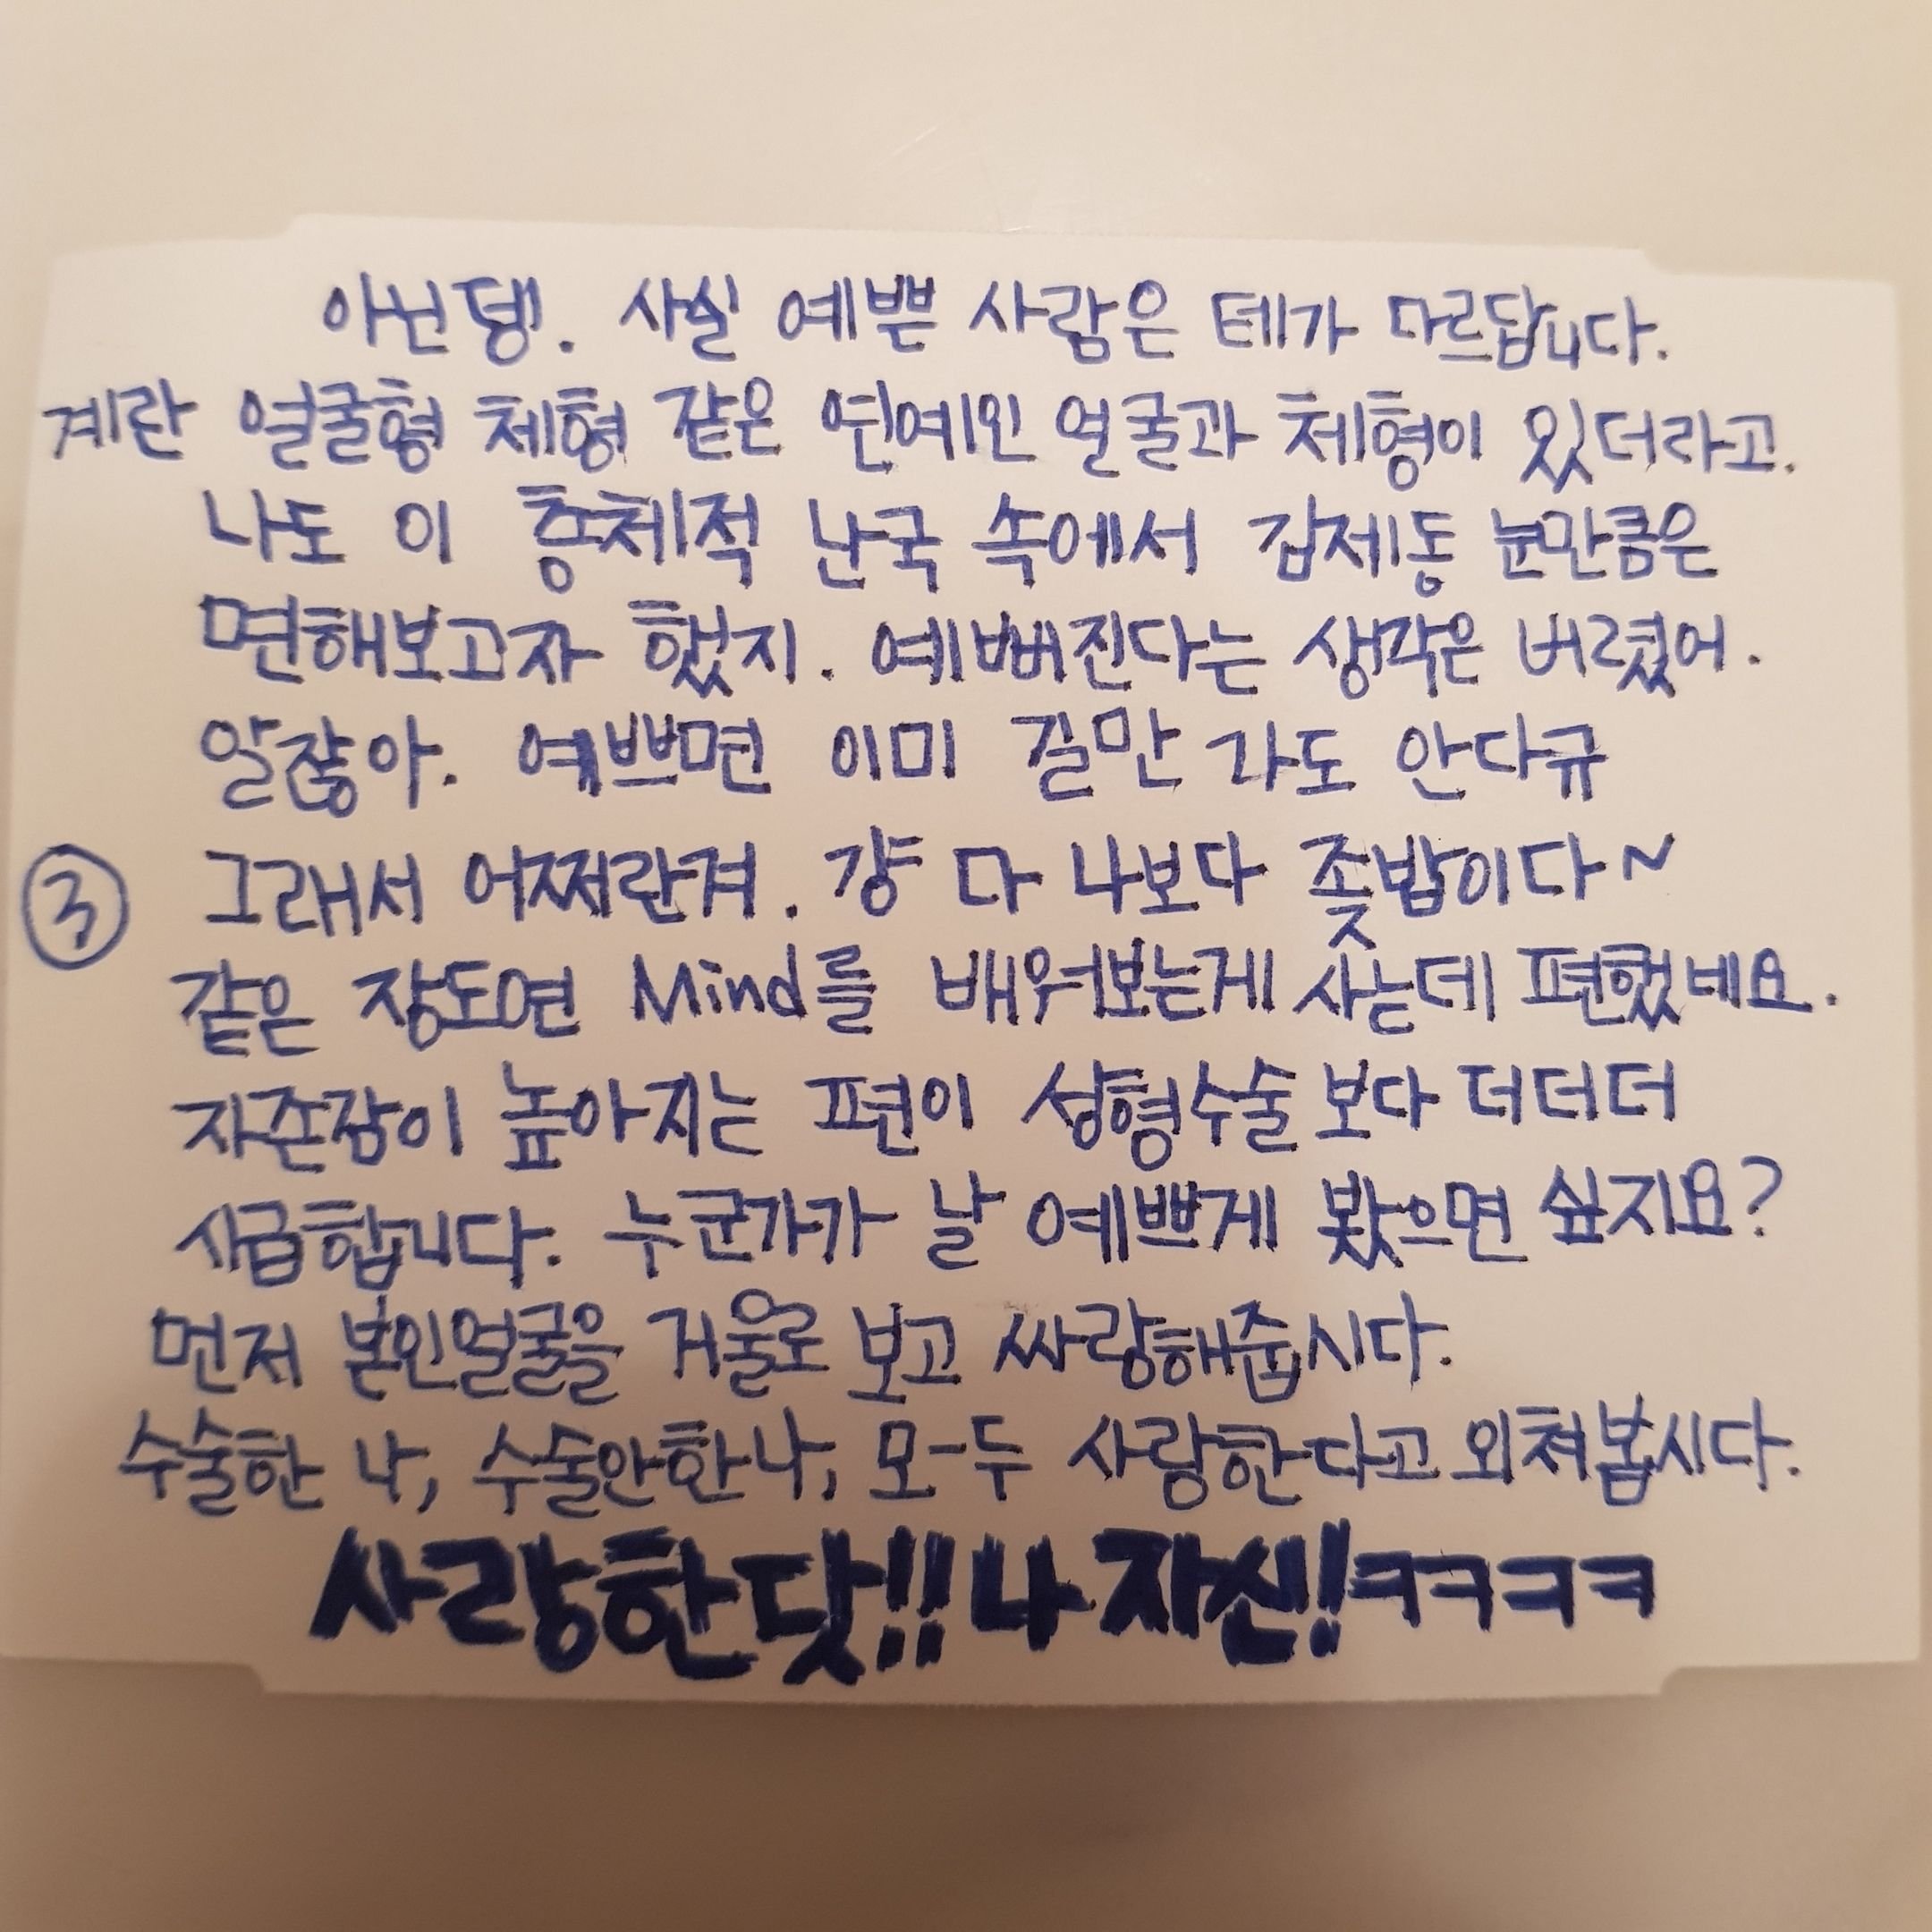 아닌뎅. 사실 예쁜 사람은 테가 다르답니다.
계란 얼굴형 체형 같은 연예인 얼굴과 체형이 있더라고.
나도 이 총체적 난국 속에서 김제동 눈만큼은
면해보고자 했지. 예뻐진다는 생각은 버렸어.
알잖아. 예쁘면 이미 길만 가도 안다규
③ 그래서 어쩌란겨. 걍 다 나보다 좆밥이다~
같은 장도연 Mind를 배워보는게 사는데 편했네요.
자존감이 높아지는 편이 성형수술보다 더더더
시급합니다. 누군가가 날 예쁘게 봤으면 싶지요?
먼저 본인얼굴을 거울로 보고 싸랑해줍시다.
수술한 나, 수술안한나, 모-두 사랑한다고 외쳐봅시다.
사랑한닷!! 나 자신!! ㅋㅋㅋㅋ